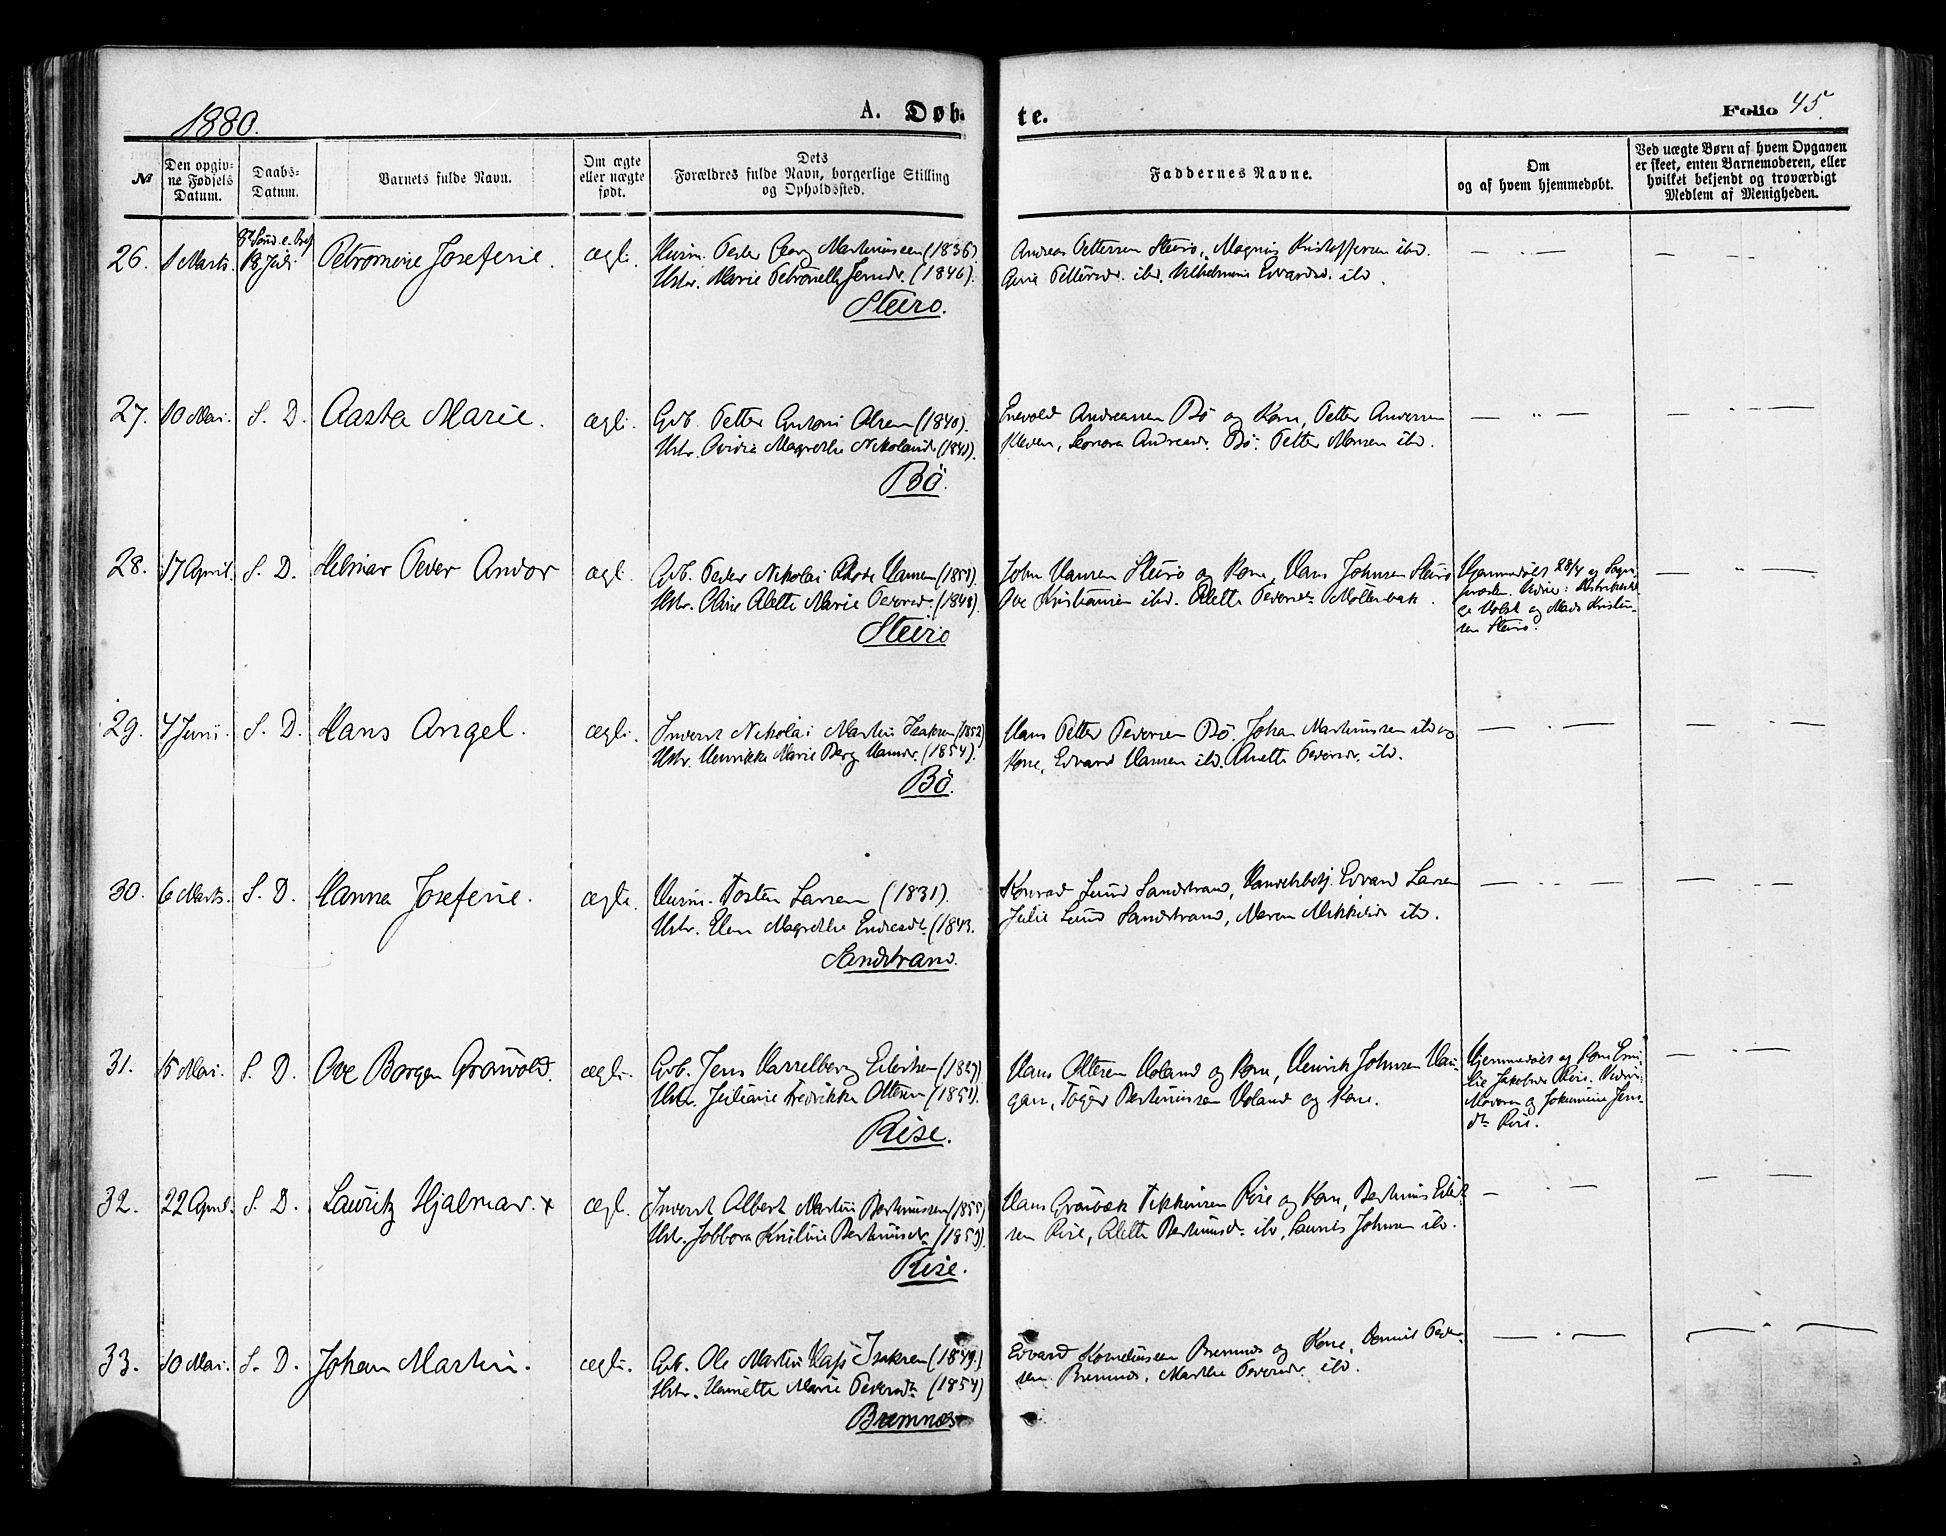 1880.
A. Døb-
te.
Folio 45.
№
Den opgiv-
ne Fødsels
Datum.
Daabs-
Datum.
Barnets fulde Navn.
Om ægte
eller uægte
født.
Dets
Forældres fulde Navn, borgerlige Stilling
og Opholdssted.
Faddernes Navne.
Om
og af hvem hjemmedøbt.
Ved uægte Børn af hvem Opgaven
er skeet, enten Barnemoderen, eller
hvilket bekjendt og troværdigt
Medlem af Menigheden.
26.
1 Marts.
8de Sønd. e.
18 Juli
Petromine Josefine.
ægte.
Husm. Peder Georg Martinussen (1836)
Hstr. Marie Petronelle Jensdr. (1846).
Steiro.
Andreas Pettersen Steiro, Magnus Kristoffersen ibd.
Pettersdr. ibd. Vilhelmine Edvardsd. ibd.
27.
10 Mai.
S. D.
Aasta Marie.
ægte.
Gdb. Petter Antoni Olsen (1840).
Hstr. Ovidia Magrethe Nikolaisd.
Bö.
Enevold Andreassen Bö og Kone, Petter Andersen
Kleven, Leonora Andreasdr. Bö. Petter Monsen ibd.
28.
17 April.
S. D.
Helmer Peder Andor
ægte.
Gdb. Peder Nikolai Rhode Hansen (1851).
Hstr. Oline Alette Marie Pedersd. (1848).
Steiro
John Hansen Steiro og Kone, Hans Johnsen Steiro
Ove Kristiansen ibd. Alette Pedersdr. Mollenbak.
Hjemmedöbt 28/4 af Sogne-
præsten. Vidne:
Holst og Mads Kristen-
sen Steiro.
29.
4 Juni.
S. D.
Hans Angel.
ægte.
Inderst Nikolai Martin Isaksen (1852)
Hstr. Henrikke Marie Berg Hansdr. (1854).
Bö.
Hans Petter Pedersen Bö. Johan Martinussen ibd og
Kone, Edvard Hansen ibd. Anette Pedersdr. ibd.
30.
6 Marts.
S. D.
Hanna Josefine.
ægte.
Husm. Tosten Larsen (1831).
Hstr. Elen Magrethe Endresdr. (1843.
Sandstrand.
Konrad Lund Sandstrand, Handelsbetj. Edvard Larsen
Julie Lund Sandstrand, Maren Mikkelsdr ibd.
31.
15 Mai.
S. D.
Ove Borgen Grönvold.
ægte.
Gdb. Jens Hasselberg Eilertsen (1827).
Hstr. Juliane Fredrikke Ottesen (1851).
Rise.
Hans Ottesen Voland og Kone, Henrik Johnsen Hau-
gan, Töger Bertinussen Voland og Kone.
Hjemmedöbt af Kone Emi-
lie Jakobsdr Rise. Vidne:
Moderen og Johannine Jens-
dtr. Rise.
32.
22 April.
S. D.
Lauritz Hjalmar. x
ægte.
Inderst Albert Martin Bertinussen (1855)
Hstr. Jobbora Kristine Bertinusdr. (1853).
Rise.
Hans Grönbæk Tikkinsen Rise og Kone, Bertinus Eilert-
sen Rise, Alette Bertinusdr. ibd, Laurits Johnsen ibd.
33.
10 Mai.
S. D.
Johan Martin.
ægte.
Gdb. Ole Martin Isaksen (1849.)
Hstr. Hanette Marie Pedersdr. (1854)
Bremnes
Edvard Korneliussen Bremnes og Kone, Peder-
sen Bremnes, Marthe Pedersdr. ibd.